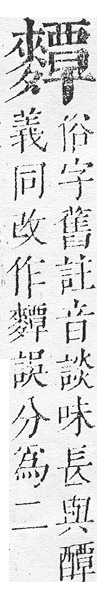 俗字舊註音談味長與醰
義同改作誤分為二